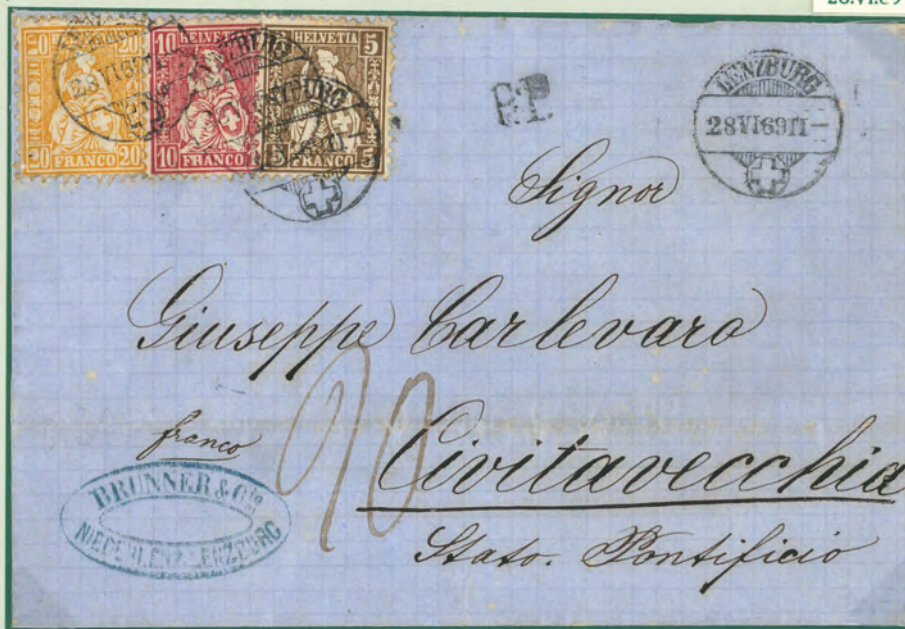 28.VI.69
20 20
20 FRANCO 20
10 HELVETIA 10
10 FRANCO 10
HELVETIA 5
5 FRANCO 5
28 VI 69
LENZBURG
P.P.
LENZBURG
28 VI 69 11 –
Signor
Giuseppe Carlevaro
franco
20
Civitavecchia
Stato. Pontificio
BRUNNER & Cie
NIEDERLENZ-LENZBURG